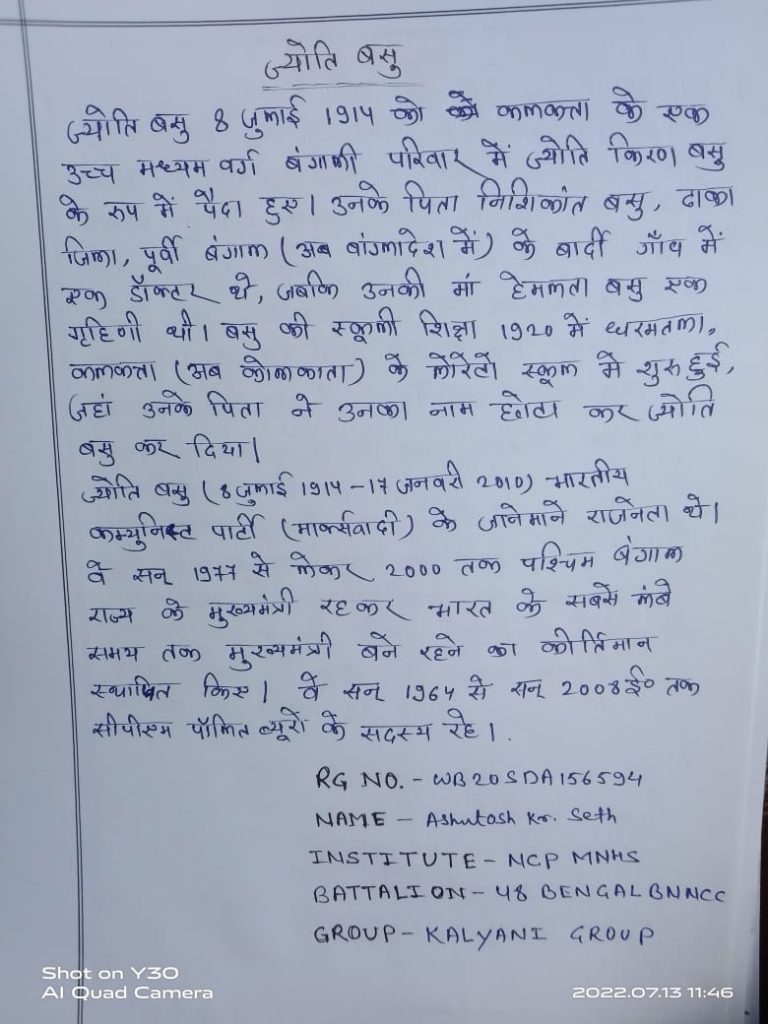 ज्योति बसु
ज्योति बसु 8 जुलाई 1914 को कलकत्ता के एक
उच्च मध्यम वर्ग बंगाली परिवार में ज्योति किरण बसु
के रुप में पैदा हुए। उनके पिता निशिकांत बसु, ढाका
जिला, पूर्वी बंगाल (अब बांग्लादेश में) के बार्दी गाँव में
एक डॉक्टर थे, जबकि उनकी मां हेमलता बसु एक
गृहिणी थी। बसु की स्कूली शिक्षा 1920 में धरमतला,
कलकत्ता (अब कोलकाता) के लोरेटो स्कूल मे शुरु हुई,
जहां उनके पिता ने उनका नाम छोटा कर ज्योति
बसु कर दिया।
ज्योति बसु (8 जुलाई 1914 - 17 जनवरी 2010) भारतीय
कम्युनिस्ट पार्टी (मार्क्सवादी) के जानेमाने राजनेता थे।
वे सन् 1977 से लेकर 2000 तक पश्चिम बंगाल
राज्य के मुख्यमंत्री रहकर भारत के सबसे लंबे
समय तक मुख्यमंत्री बने रहने का कीर्तिमान
स्थापित किए। वे सन् 1964 से सन् 2008 ई० तक
सीपीएम पॉलित ब्यूरो के सदस्य रहे।
RG NO. - WB20SDA156594
NAME - Ashutosh Kr. Seth
INSTITUTE - NCP MNHS
BATTALION - 48 BENGAL BN NCC
GROUP - KALYANI GROUP
Shot on Y30
AI Quad Camera
2022.07.13 11:46